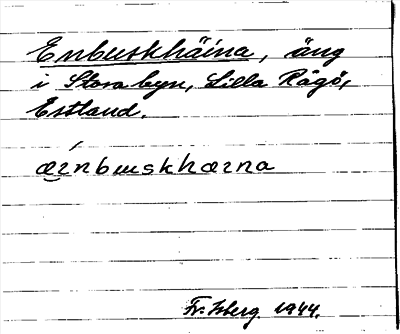 Enbuskhäina, äng
i Storabyn, Lilla Rågö,
Estland.
æ̯ɪnbɯskhæɪna
Fr. Isberg 1944.